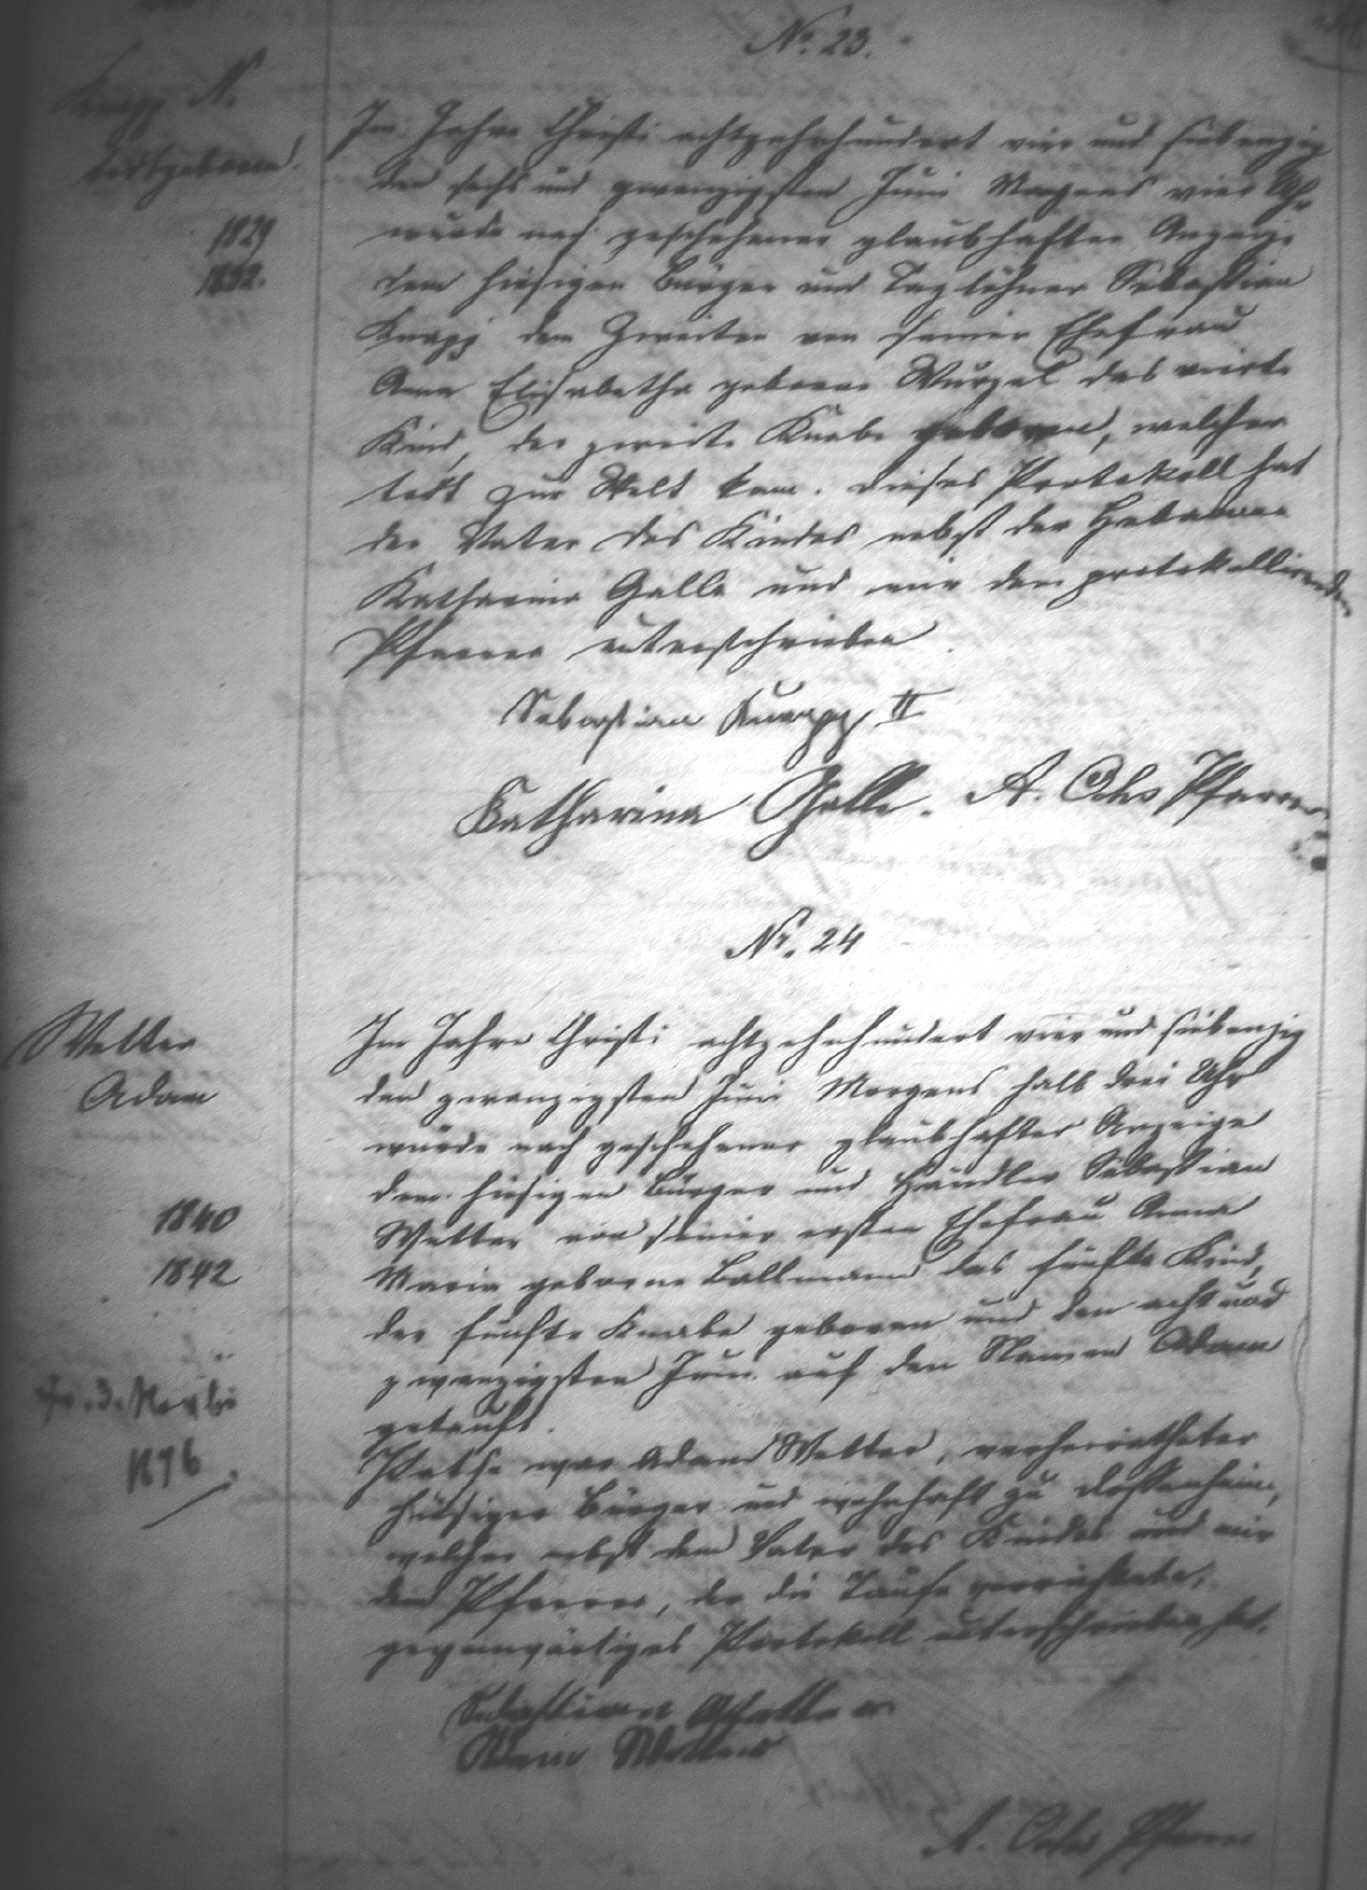 No. 23.
Knapp N.
todtgeboren.
1829
1832.
Im Jahre Christi achtzehnhundert vier und siebenzig
den sechs und zwanzigsten Juni Morgens vier Uhr
wurde nach geschehener glaubhafter Anzeige
dem hiesigen Bürger und Taglöhner Sebastian
Knapp dem Zweiten von seiner Ehefrau
Anna Elisabetha geborene Wurzel das vierte
Kind, der zweite Knabe geboren, welcher
todt zur Welt kam. Dieses Protokoll hat
der Vater des Kindes nebst der Hebamme
Katharina Galle und mir dem protokollirenden
Pfarrer unterschrieben
Sebastian Knapp II
Katharina Galle. A. Ochs Pfarrer
Nr. 24
Welter
Adam
1840
1842
3. Novbr
1896
Im Jahre Christi achtzehnhundert vier und siebenzig
den zwanzigsten Juni Morgens halb drei Uhr
wurde nach geschehener glaubhafter Anzeige
dem hiesigen Bürger und Händler Sebastian
Welter von seiner ersten Ehefrau Anna
Maria geborene Ballmann das fünfte Kind,
der fünfte Knabe geboren und den acht und
zwanzigsten Juni auf den Namen Adam
getauft.
Pathe war Adam Welter, verheiratheter
hiesiger Bürger und wohnhaft zu
welcher nebst dem Vater des Kindes und mir
dem Pfarrer, der die Taufe verrichtete,
gegenwärtiges Protokoll unterschrieben hat.
Sebastian Welter
Adam Welter
A. Ochs Pfarrer